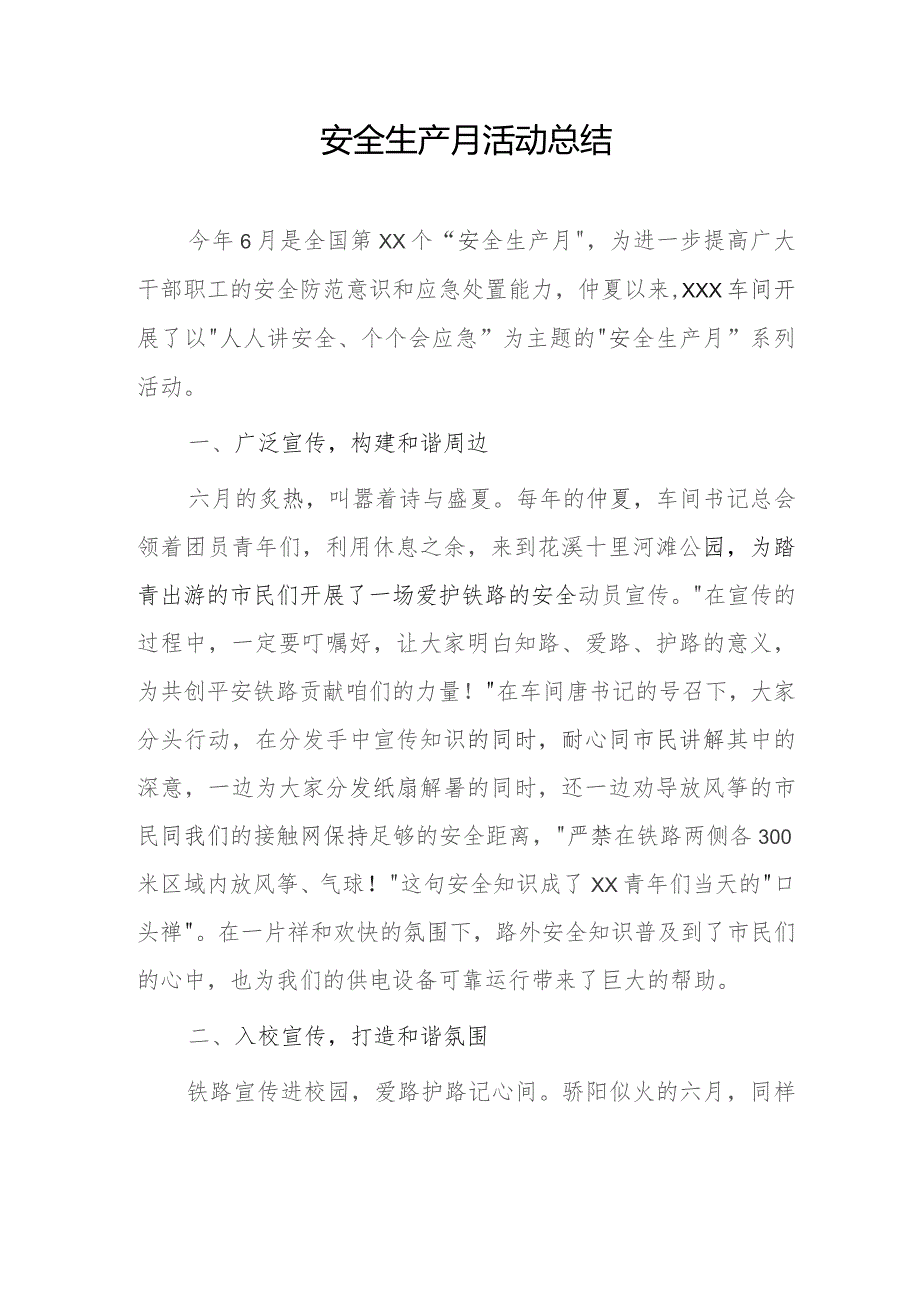 安全生产月活动总结
今年6月是全国第XX个“安全生产月"，为进一步提高广大
干部职工的安全防范意识和应急处置能力，仲夏以来,XXX车间开
展了以"人人讲安全、个个会应急”为主题的"安全生产月”系列
活动。
一、广泛宣传，构建和谐周边
六月的炙热，叫嚣着诗与盛夏。每年的仲夏，车间书记总会
领着团员青年们，利用休息之余，来到花溪十里河滩公园，为踏
青出游的市民们开展了一场爱护铁路的安全动员宣传。"在宣传的
过程中，一定要叮嘱好，让大家明白知路、爱路、护路的意义，
为共创平安铁路贡献咱们的力量！"在车间唐书记的号召下，大家
分头行动，在分发手中宣传知识的同时，耐心同市民讲解其中的
深意，一边为大家分发纸扇解暑的同时，还一边劝导放风筝的市
民同我们的接触网保持足够的安全距离，"严禁在铁路两侧各300
米区域内放风筝、气球！"这句安全知识成了XX青年们当天的"口
头禅"。在一片祥和欢快的氛围下，路外安全知识普及到了市民们
的心中，也为我们的供电设备可靠运行带来了巨大的帮助。
二、入校宣传，打造和谐氛围
铁路宣传进校园，爱路护路记心间。骄阳似火的六月，同样